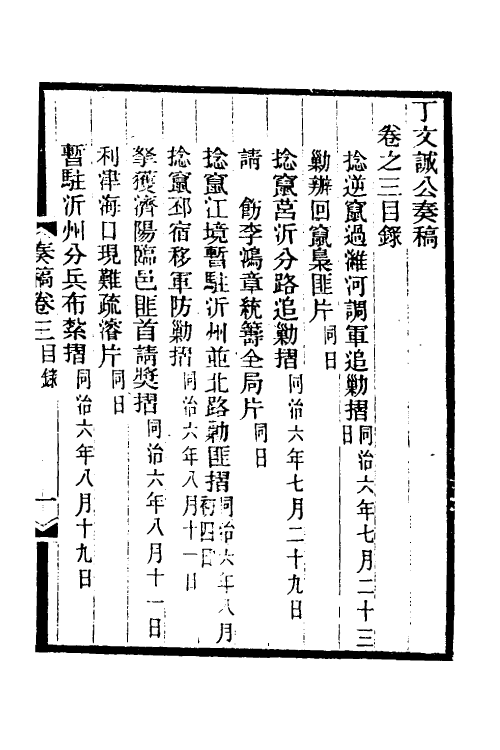 丁文誠公奏稿
卷之三目錄
捻逆竄過濰河調軍追勦摺同治六年七月二十三日
勦辦回竄梟匪片同日
捻竄莒沂分路追勦摺同治六年七月二十九日
請 飭李鴻章統籌全局片同日
捻竄江境暫駐沂州並北路勦匪摺同治六年八月初四日
捻竄邳宿移軍防勦摺同治六年八月十一日
拏獲濟陽臨邑匪首請獎摺同治六年八月十一日
利津海口現難疏濬片同日
暫駐沂州分兵布紮摺同治六年八月十九日
奏稿卷三目錄
一